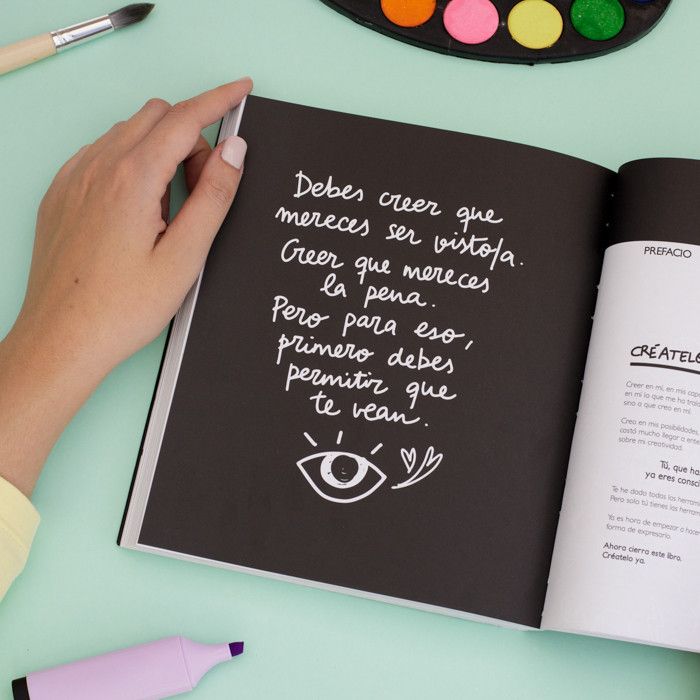 Debes creer que
mereces ser visto/a.
Creer que mereces
la pena.
Pero para eso,
primero debes
permitir que
te vean.
PREFACIO
CRÉATELO
Creer en mí, en mis
en mí lo que me ha
sino a que creo en mí.
Creo en mis posibilidades,
costó mucho llegar a
sobre mi creatividad.
Tú, que
ya eres
Te he dado todas las
Pero solo tú tienes las
Ya es hora de empezar a
forma de expresarlo.
Ahora cierra este libro.
Créatelo ya.